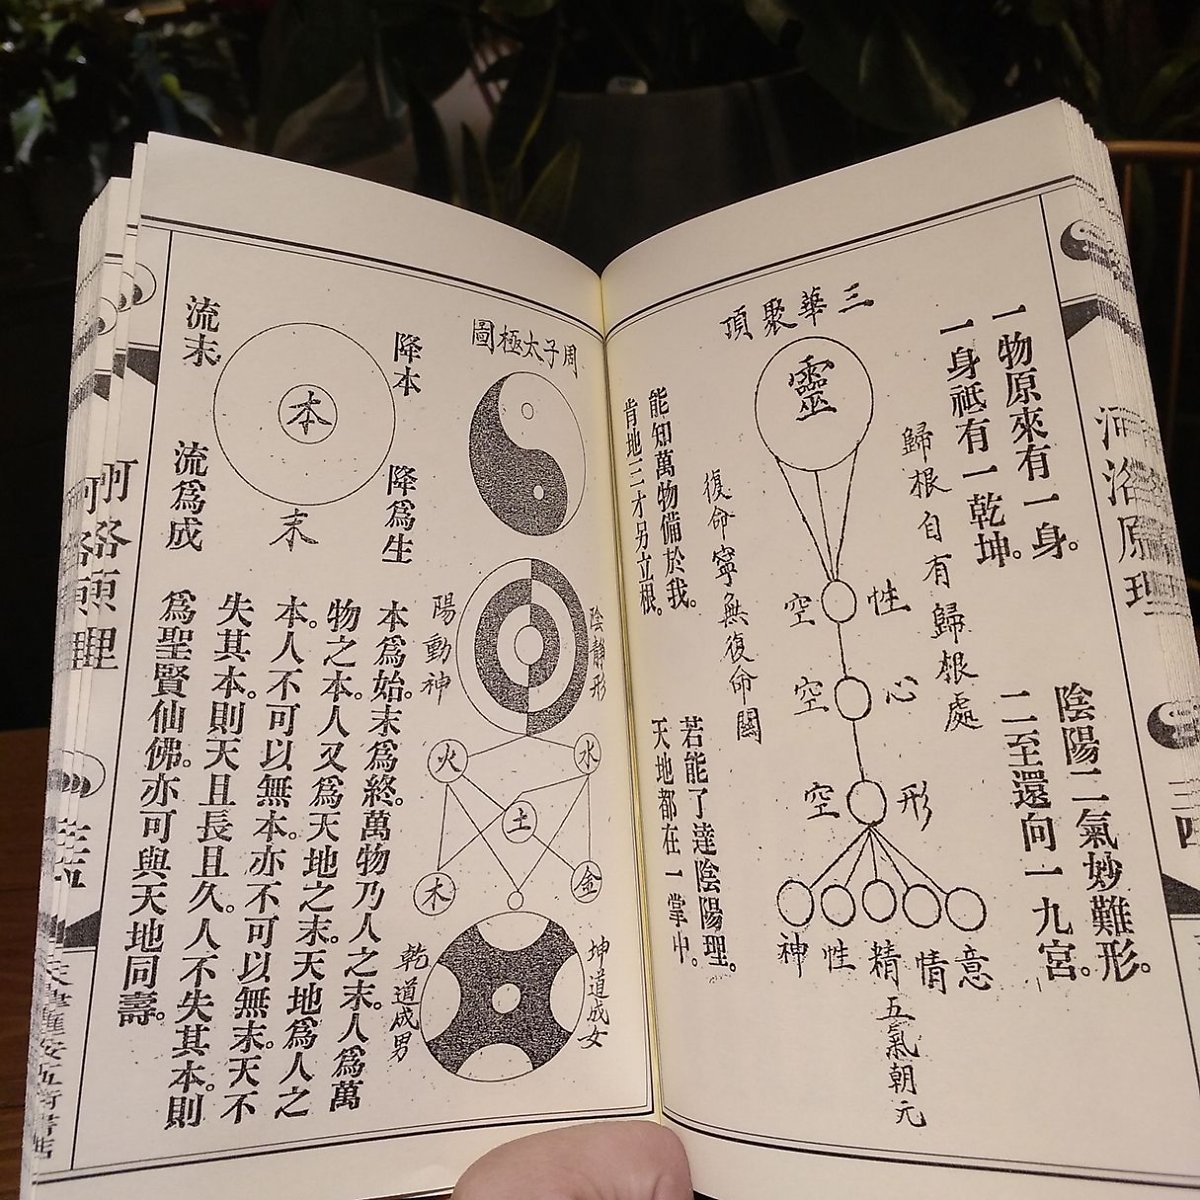 河洛原理
三四
一物原來有一身。
一身祗有一乾坤。
陰陽二氣妙難形。
二至還向一九宮。
三華聚頂
靈
歸根自有歸根處
復命寧無復命關
性
空
心
空
形
空
神
性
精
情
意
五氣朝元
能知萬物備於我。
肯地三才另立根。
若能了達陰陽理。
天地都在一掌中。
周子太極圖
陰靜形
陽動神
水
火
土
金
木
坤道成女
乾道成男
降本
降為生
本
末
流末
流爲成
本爲始。末爲終。萬物乃人之末。人爲萬
物之本。人又爲天地之末。天地爲人之
本。人不可以無本。亦不可以無末。天不
失其本。則天且長且久。人不失其本。則
爲聖賢仙佛。亦可與天地同壽。
河洛原理
三五